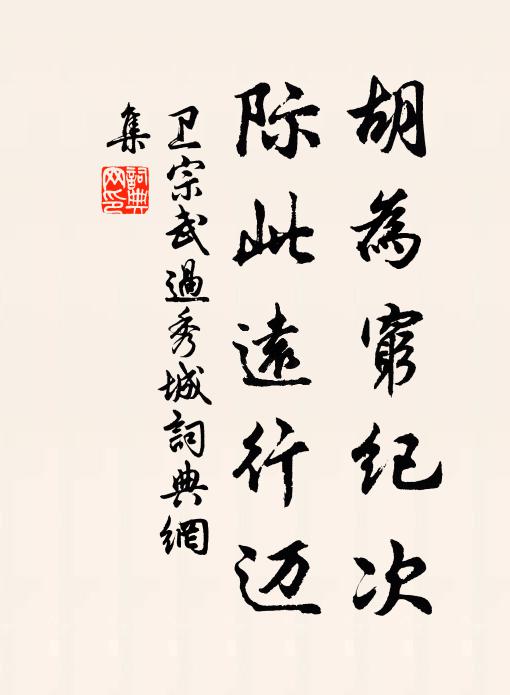 胡為窮纪次
际此遠行迈
卫宗武過秀城詞典網
集
詞典
网印